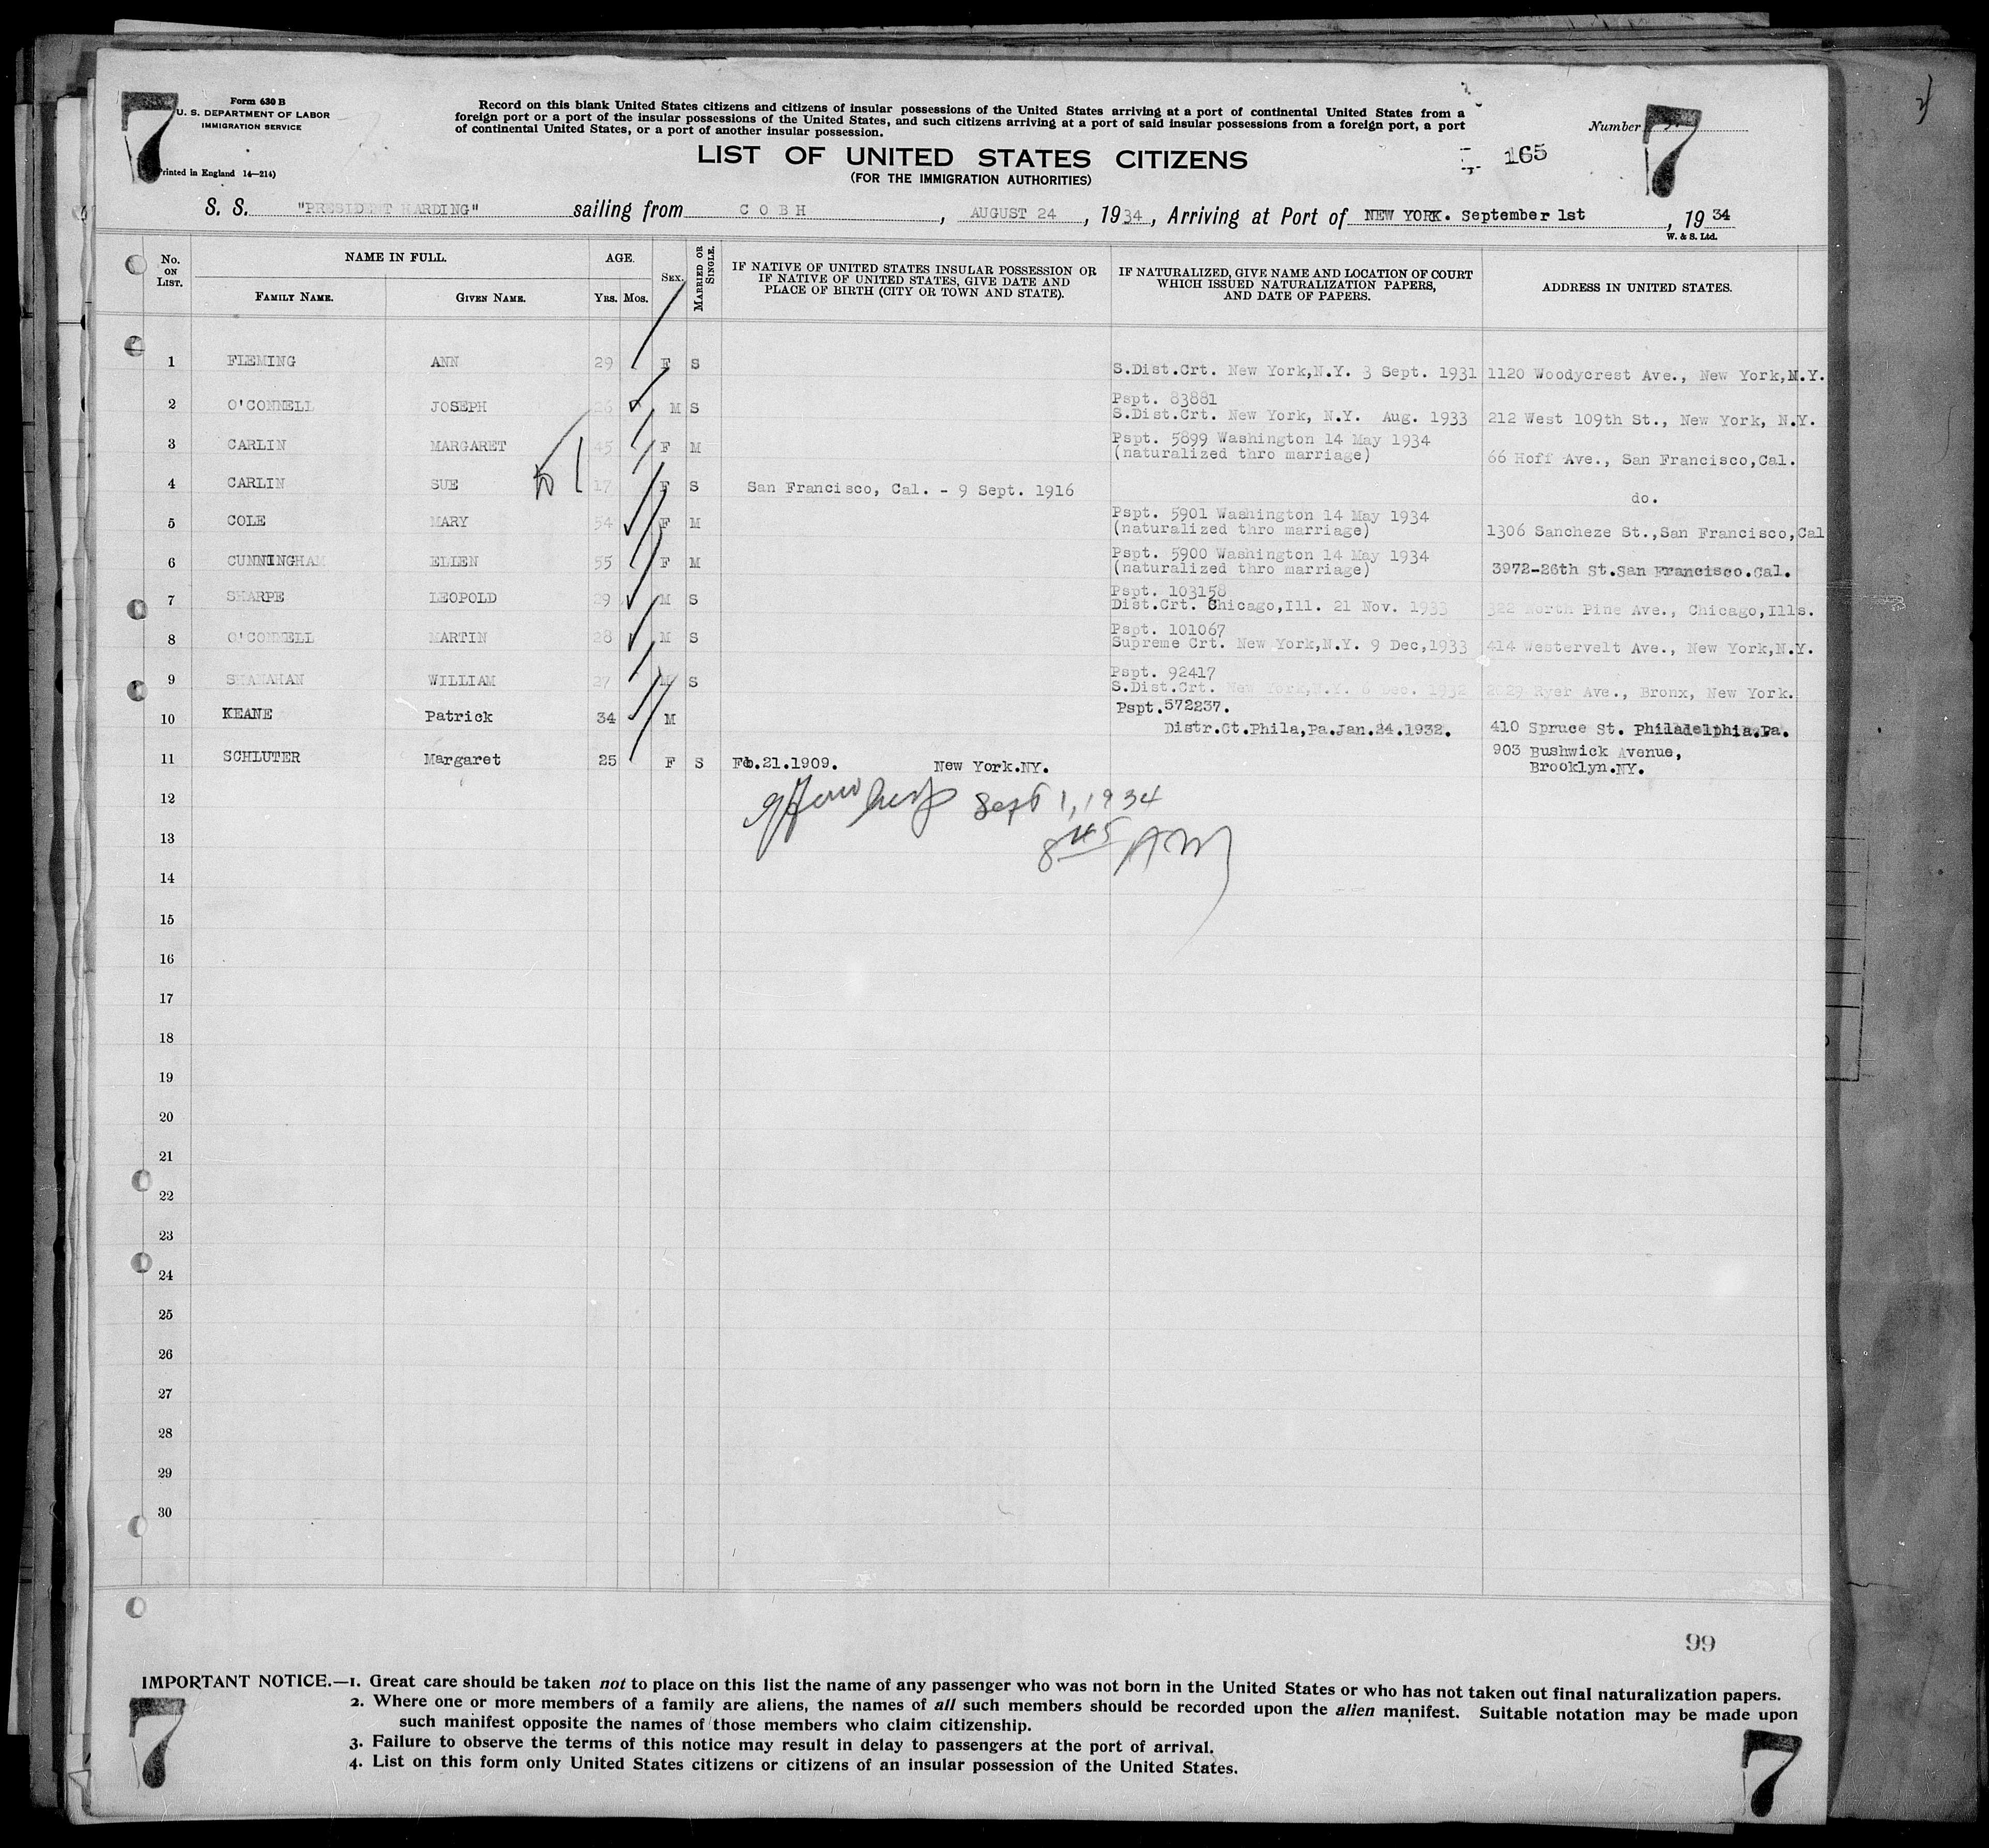 7
Form 630 B
U. S. DEPARTMENT OF LABOR
IMMIGRATION SERVICE
Printed in England 14—214)
Record on this blank United States citizens and citizens of insular possessions of the United States arriving at a port of continental United States from a
foreign port or a port of the insular possessions of the United States, and such citizens arriving at a port of said insular possessions from a foreign port, a port
of continental United States, or a port of another insular possession.
Number
7
LIST OF UNITED STATES CITIZENS
165
(FOR THE IMMIGRATION AUTHORITIES)
S. S. "PRESIDENT HARDING" sailing from COBH, AUGUST 24, 1934, Arriving at Port of NEW YORK. September 1st, 1934
W. & S. Ltd.
No. ON LIST. NAME IN FULL. FAMILY NAME. GIVEN NAME. AGE. YRS. MOS. SEX. MARRIED OR SINGLE. IF NATIVE OF UNITED STATES INSULAR POSSESSION OR IF NATIVE OF UNITED STATES, GIVE DATE AND PLACE OF BIRTH (CITY OR TOWN AND STATE). IF NATURALIZED, GIVE NAME AND LOCATION OF COURT WHICH ISSUED NATURALIZATION PAPERS, AND DATE OF PAPERS. ADDRESS IN UNITED STATES.
1 FLEMING ANN 29 F S S.Dist.Crt. New York,N.Y. 3 Sept. 1931 1120 Woodycrest Ave., New York,N.Y.
2 O'CONNELL JOSEPH 26 M S Pspt. 83881
S.Dist.Crt. New York, N.Y. Aug. 1933 212 West 109th St., New York, N.Y.
3 CARLIN MARGARET 45 F M Pspt. 5899 Washington 14 May 1934
(naturalized thro marriage) 66 Hoff Ave., San Francisco,Cal.
4 CARLIN SUE 17 F S San Francisco, Cal. - 9 Sept. 1916 do.
5 COLE MARY 54 F M Pspt. 5901 Washington 14 May 1934
(naturalized thro marriage) 1306 Sancheze St.,San Francisco,Cal
6 CUNNINGHAM ELLEN 55 F M Pspt. 5900 Washington 14 May 1934
(naturalized thro marriage) 3972-26th St.San Francisco.Cal.
7 SHARPE LEOPOLD 29 M S Pspt. 103158
Dist.Crt. Chicago,Ill. 21 Nov. 1933 322 North Pine Ave., Chicago,Ills.
8 O'CONNELL MARTIN 28 M S Pspt. 101067
Supreme Crt. New York,N.Y. 9 Dec,1933 414 Westervelt Ave., New York,N.Y.
9 SHANAHAN WILLIAM 27 M S Pspt. 92417
S.Dist.Crt. New York,N.Y. 6 Dec. 1932 2029 Ryer Ave., Bronx, New York.
10 KEANE Patrick 34 M Pspt.572237.
Distr.Ct.Phila,Pa.Jan.24.1932. 410 Spruce St. Philadelphia.Pa.
11 SCHLUTER Margaret 25 F S Feb.21.1909. New York.NY. 903 Bushwick Avenue,
Brooklyn.NY.
12
Sept 1, 1934
13
8 45 AM
14
15
16
17
18
19
20
21
22
23
24
25
26
27
28
29
30
99
IMPORTANT NOTICE.—1. Great care should be taken not to place on this list the name of any passenger who was not born in the United States or who has not taken out final naturalization papers.
2. Where one or more members of a family are aliens, the names of all such members should be recorded upon the alien manifest. Suitable notation may be made upon
such manifest opposite the names of those members who claim citizenship.
3. Failure to observe the terms of this notice may result in delay to passengers at the port of arrival.
4. List on this form only United States citizens or citizens of an insular possession of the United States.
7
7